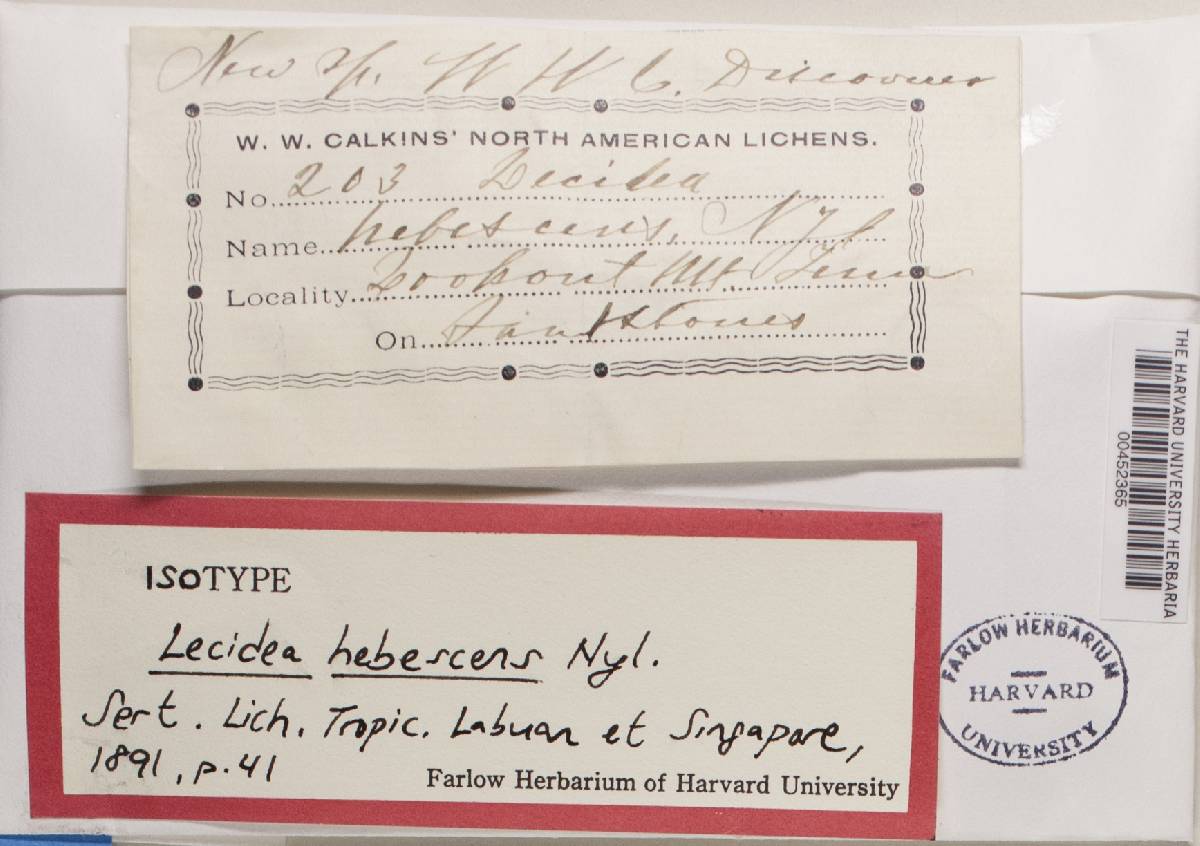 New Sp. W W C. Discoverer
W. W. CALKINS' NORTH AMERICAN LICHENS.
No. 203 Lecidea
Name. hebescens, Nyl
Locality. Lookout Mt. Tenn
On. Sandstones
THE HARVARD UNIVERSITY HERBARIA
00452365
ISOTYPE
Lecidea hebescens Nyl.
Sert. Lich. Tropic. Labuan et Singapore,
1891, p. 41
Farlow Herbarium of Harvard University
FARLOW HERBARIUM
HARVARD
UNIVERSITY